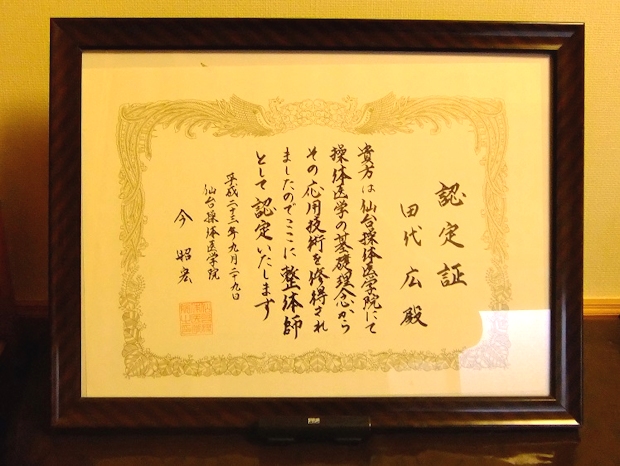 認定証
田代広殿
貴方は仙台操体医学院にて
操体医学の基礎理念から
その応用技術を修得され
ましたのでここに整体師
として認定いたします
平成二十三年九月二十九日
仙台操体医学院
今昭宏